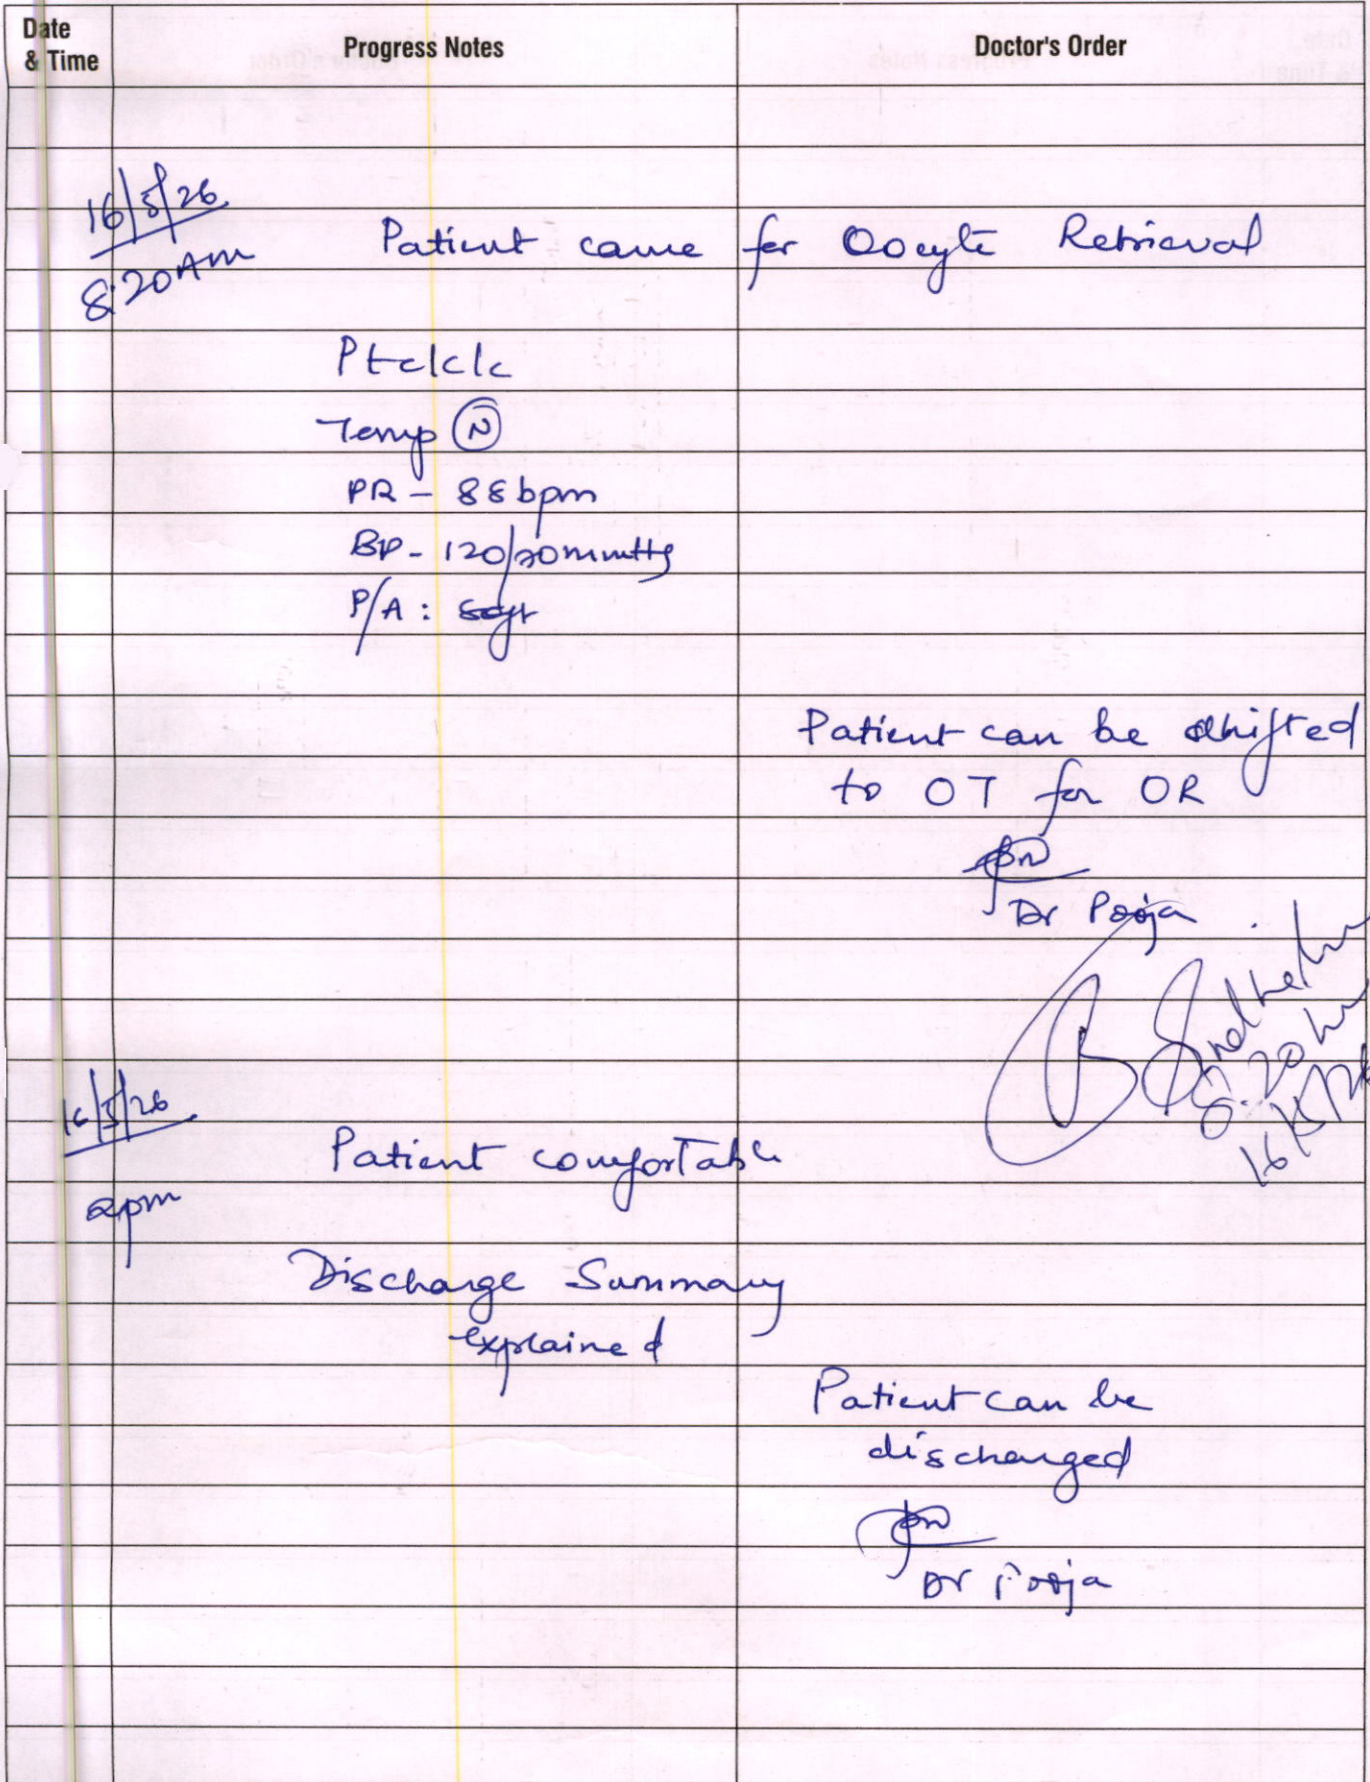 Date
& Time
Progress Notes
Doctor's Order
16/5/26
8:20 Am
Patient came for Oocyte Retrieval
Pt c/c/c
Temp (N)
PR - 88 bpm
BP - 120/ mmHg
P/A: soft
Patient can be shifted
to OT for OR
Dr Pooja
B
8:20
16/5/26
16/5/26
2pm
Patient comfortable
Discharge Summary
explained
Patient can be
discharged
Dr Pooja